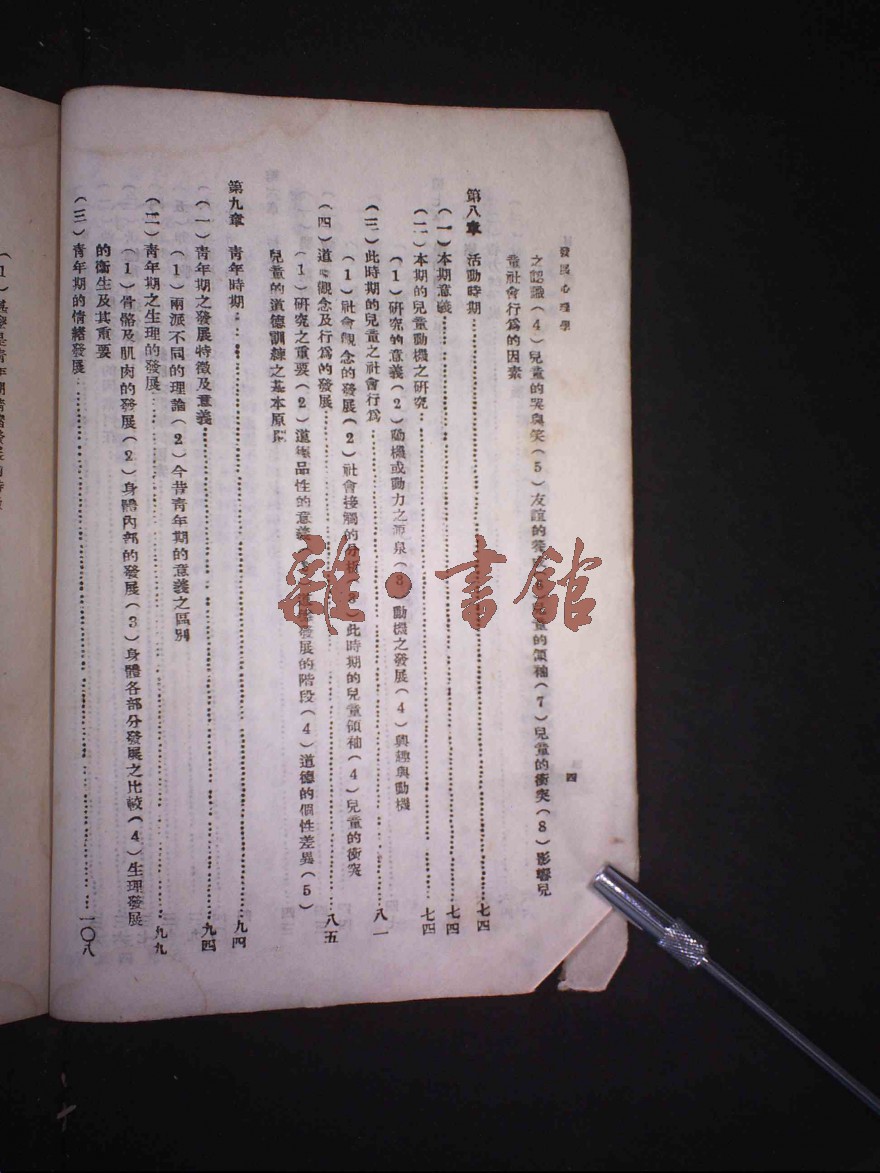 發展心理學
四
之認識(4)兒童的哭與笑(5)友誼的養成(6)兒童的領袖(7)兒童的衝突(8)影響兒
童社會行爲的因素
第八章 活動時期……七四
(一)本期意義……七四
(二)本期的兒童動機之研究……七四
(1)研究的意義(2)動機或動力之源泉(3)動機之發展(4)興趣與動機
(三)此時期的兒童之社會行爲……八一
(1)社會觀念的發展(2)社會接觸的分析(3)此時期的兒童領袖(4)兒童的衝突
(四)道德觀念及行爲的發展……八五
(1)研究之重要(2)道德品性的意義(3)道德發展的階段(4)道德的個性差異(5)
兒童的道德訓練之基本原則
第九章 青年時期……九四
(一)青年期之發展特徵及意義……九四
(1)兩派不同的理論(2)今昔青年期的意義之區別
(二)青年期之生理的發展……九九
(1)骨骼及肌肉的發展(2)身體內部的發展(3)身體各部分發展之比較(4)生理發展
的衛生及其重要
(三)青年期的情緒發展……一〇八
雜·書館